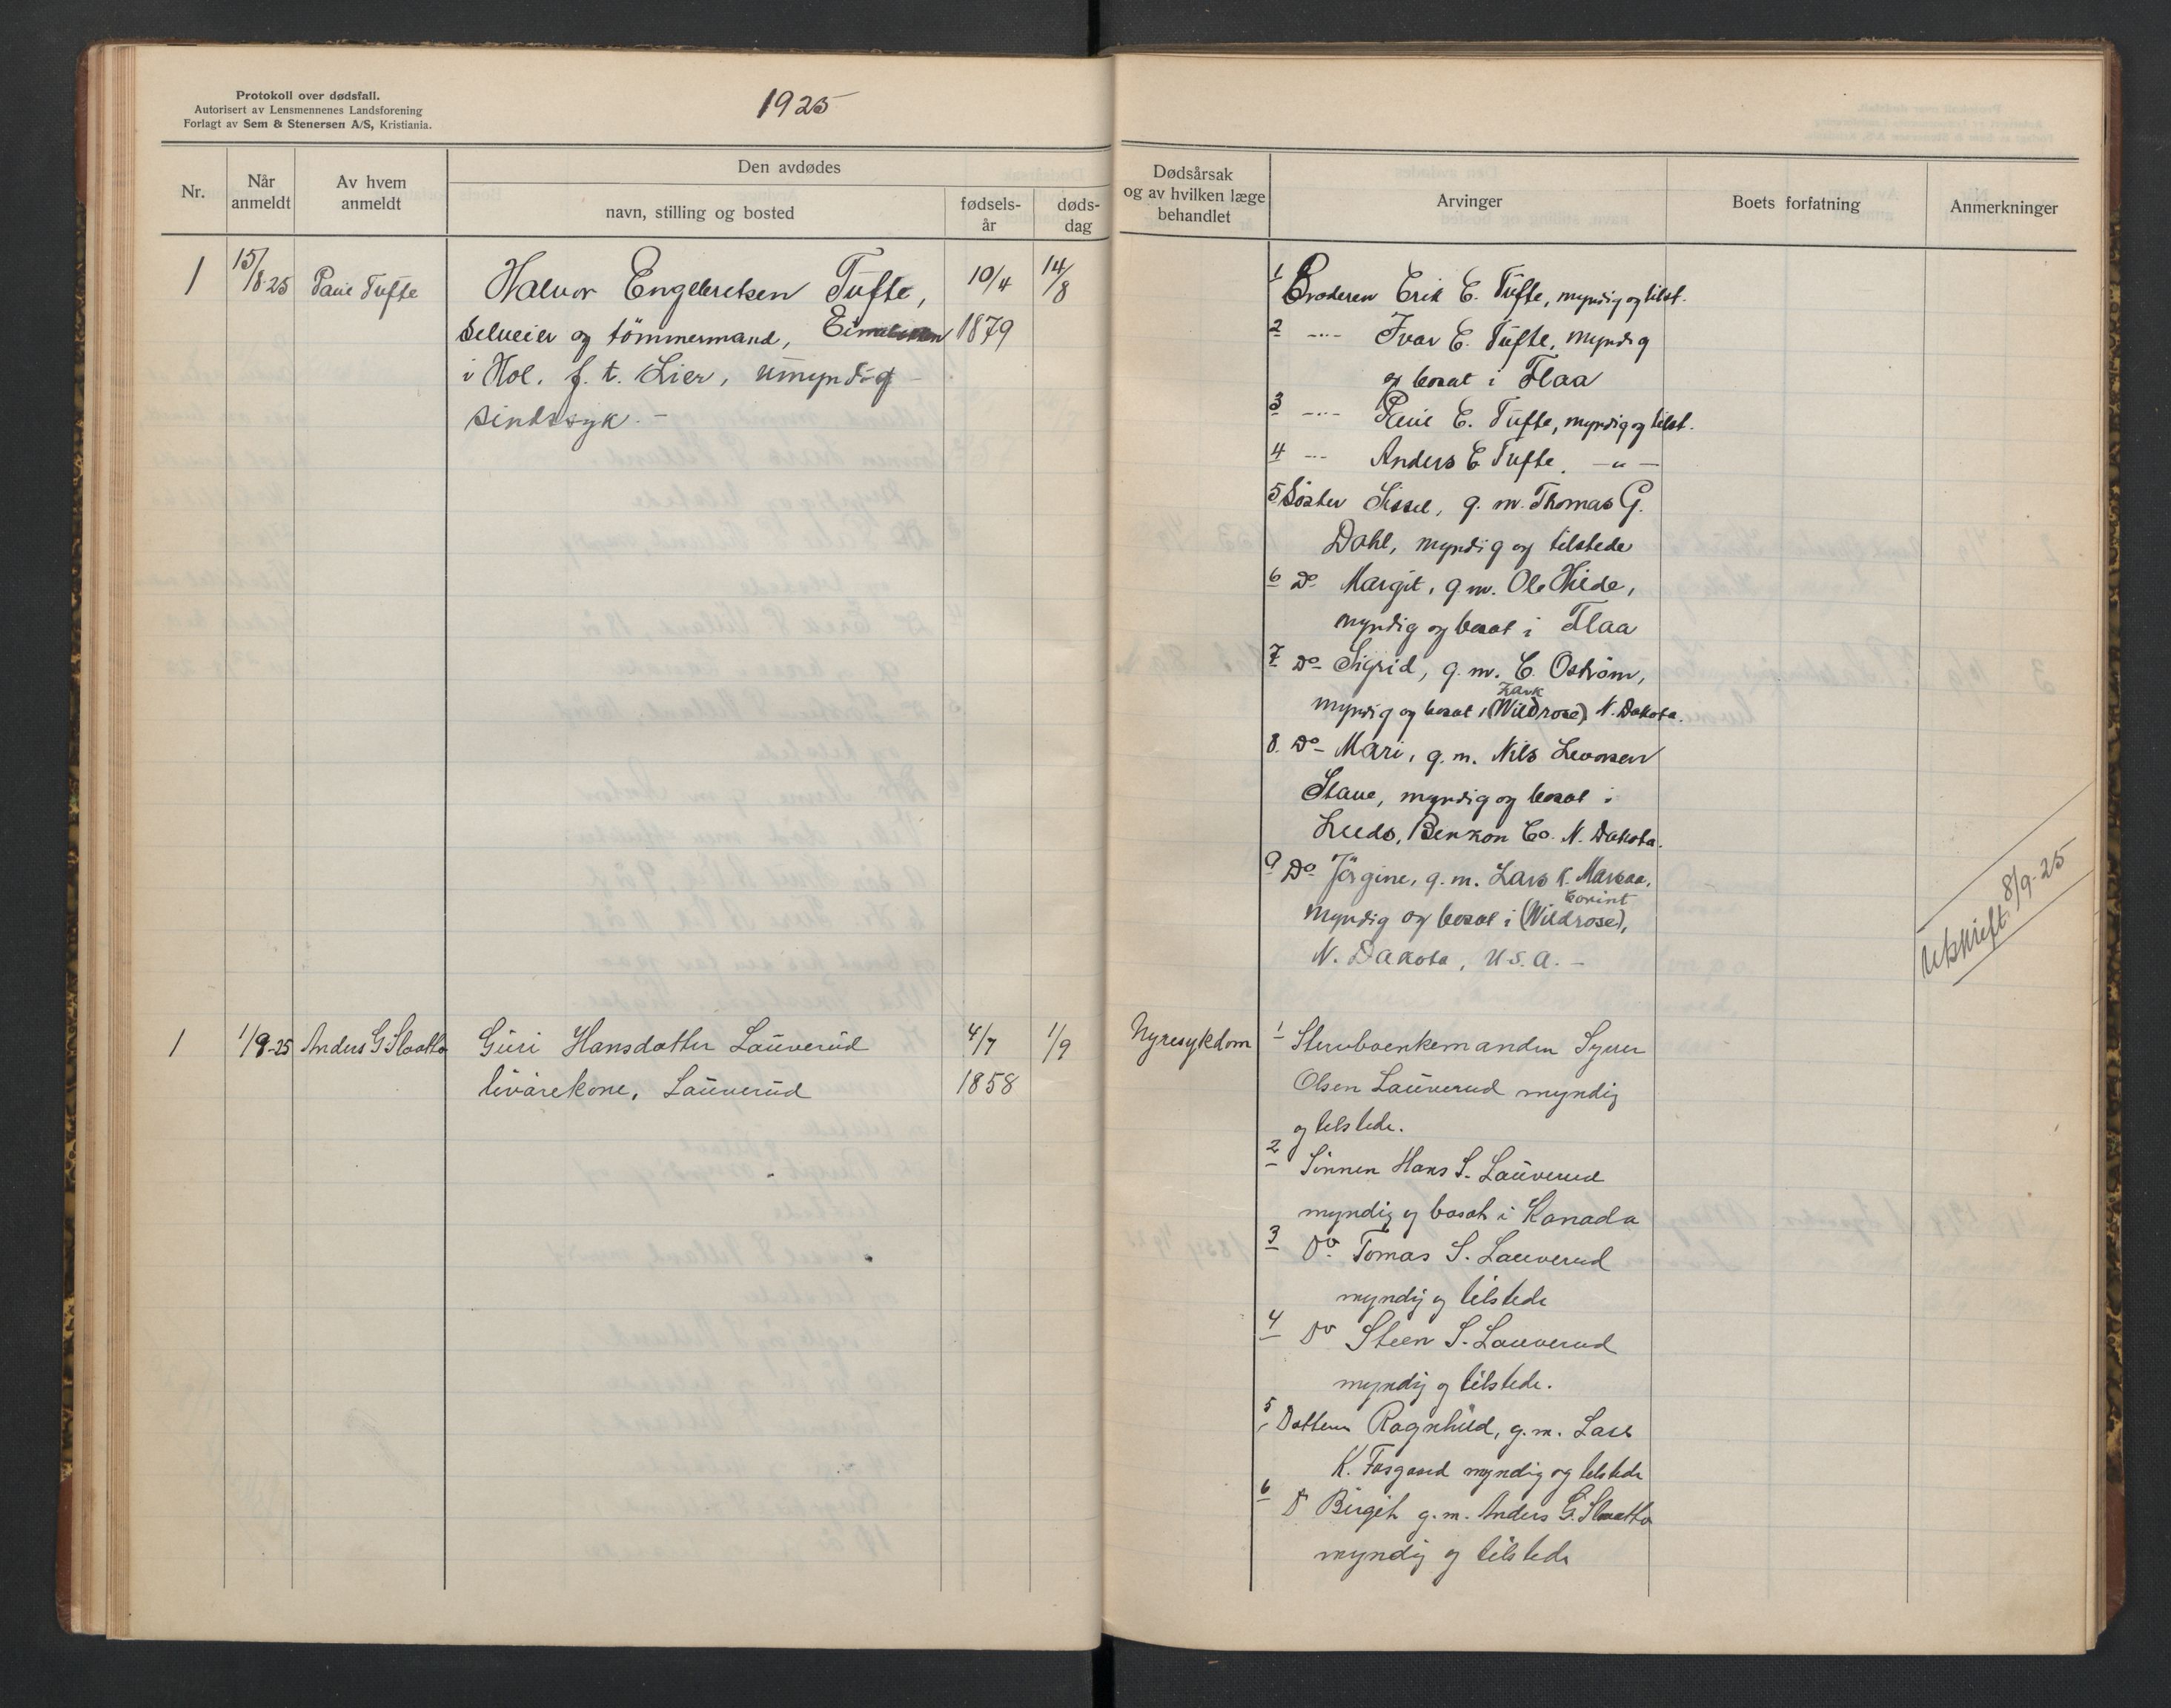 Protokoll over dødsfall.
Autorisert av Lensmennenes Landsforening
Forlagt av Sem & Stenersen A/S, Kristiania.
1925
Nr.
Når anmeldt
Av hvem anmeldt
Den avdødes
navn, stilling og bosted
fødsels-år
døds-dag
Dødsårsak og av hvilken læge behandlet
Arvinger
Boets forfatning
Anmerkninger
1 15/8-25 Paul Tufte Halvor Engebretsen Tufte, 10/4 14/8
selveier og tömmermand, 1879
i Hol. f. t. Lier, umyndig
sindssyk. -
1 Broderen Erik E. Tufte, myndig og tilst.
2 -..- Ivar E. Tufte, myndig
og bosat i Flaa
3 -..- Paul E. Tufte, myndig og tilst.
4 -..- Anders E. Tufte. -"-
5 Söster Sissel, g. m. Thomas G.
Dahl, myndig og tilstede
6 Do Margit, g. m. Ole Hilde,
myndig og bosat i Flaa
7 Do- Sigrid, g. m. C. Oström,
Zark
myndig og bosat i (Wildrose) N. Dakota.
8. Do- Mari, g. m. Nils Levorsen
Stave, myndig og bosat i
Leeds, Benxon Co. N. Dakota.
9 Do Jörgine, g. m. Lars K.
Corint
myndig og bosat i (Wildrose),
N. Dakota, U.S.A. -
Utskrift 8/9-25
1 1/9-25 Anders G Slaatto Guri Hansdatter Lauverud 4/7 1/9 Nyresykdom
livörekone, Lauverud 1858
1 Stervboenkemanden Syver
Olsen Lauverud myndig
og tilstede.
2 Sönnen Hans S. Lauverud
myndig og bosat i Kanada
3 Do. Tomas S. Lauverud
myndig og tilstede
4 Do Steen S. Lauverud
myndig og tilstede.
5 Datteren Ragnhild, g. m. Lars
K. Fosgaard myndig og tilstede
6 Do Birgit g. m. Anders G. Slaatto
myndig og tilstede